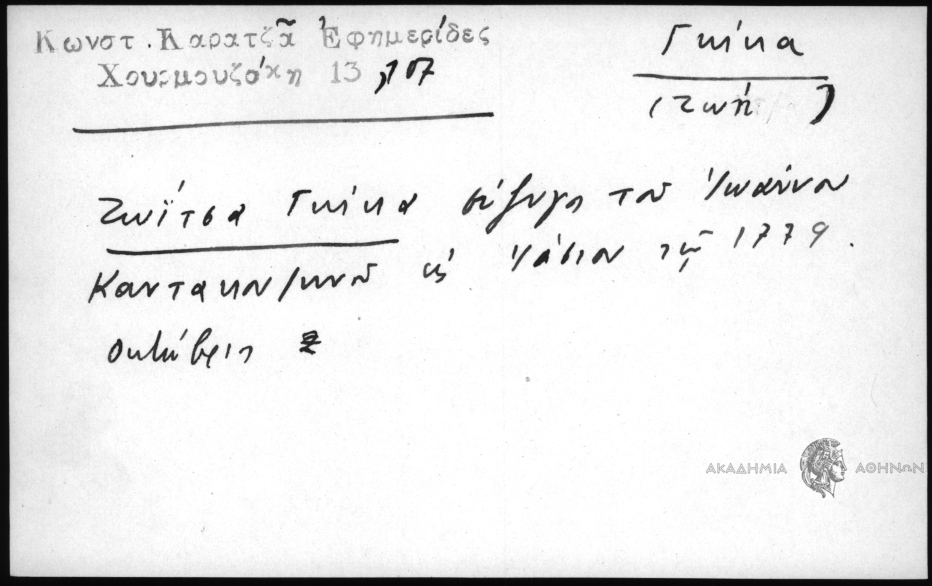 Κωνστ. Καρατζᾶ Ἐφημερίδες
Χουρμουζάκη 13, 107
Γκίκα
(Ζωή)
Ζωΐτσα Γκίκα σύζυγος τοῦ Ἰωάννου
Καντακουζηνοῦ εἰς Ἰάσιον τῷ 1779.
Ὀκτώβριο
ΑΚΑΔΗΜΙΑ ΑΘΗΝΩΝ